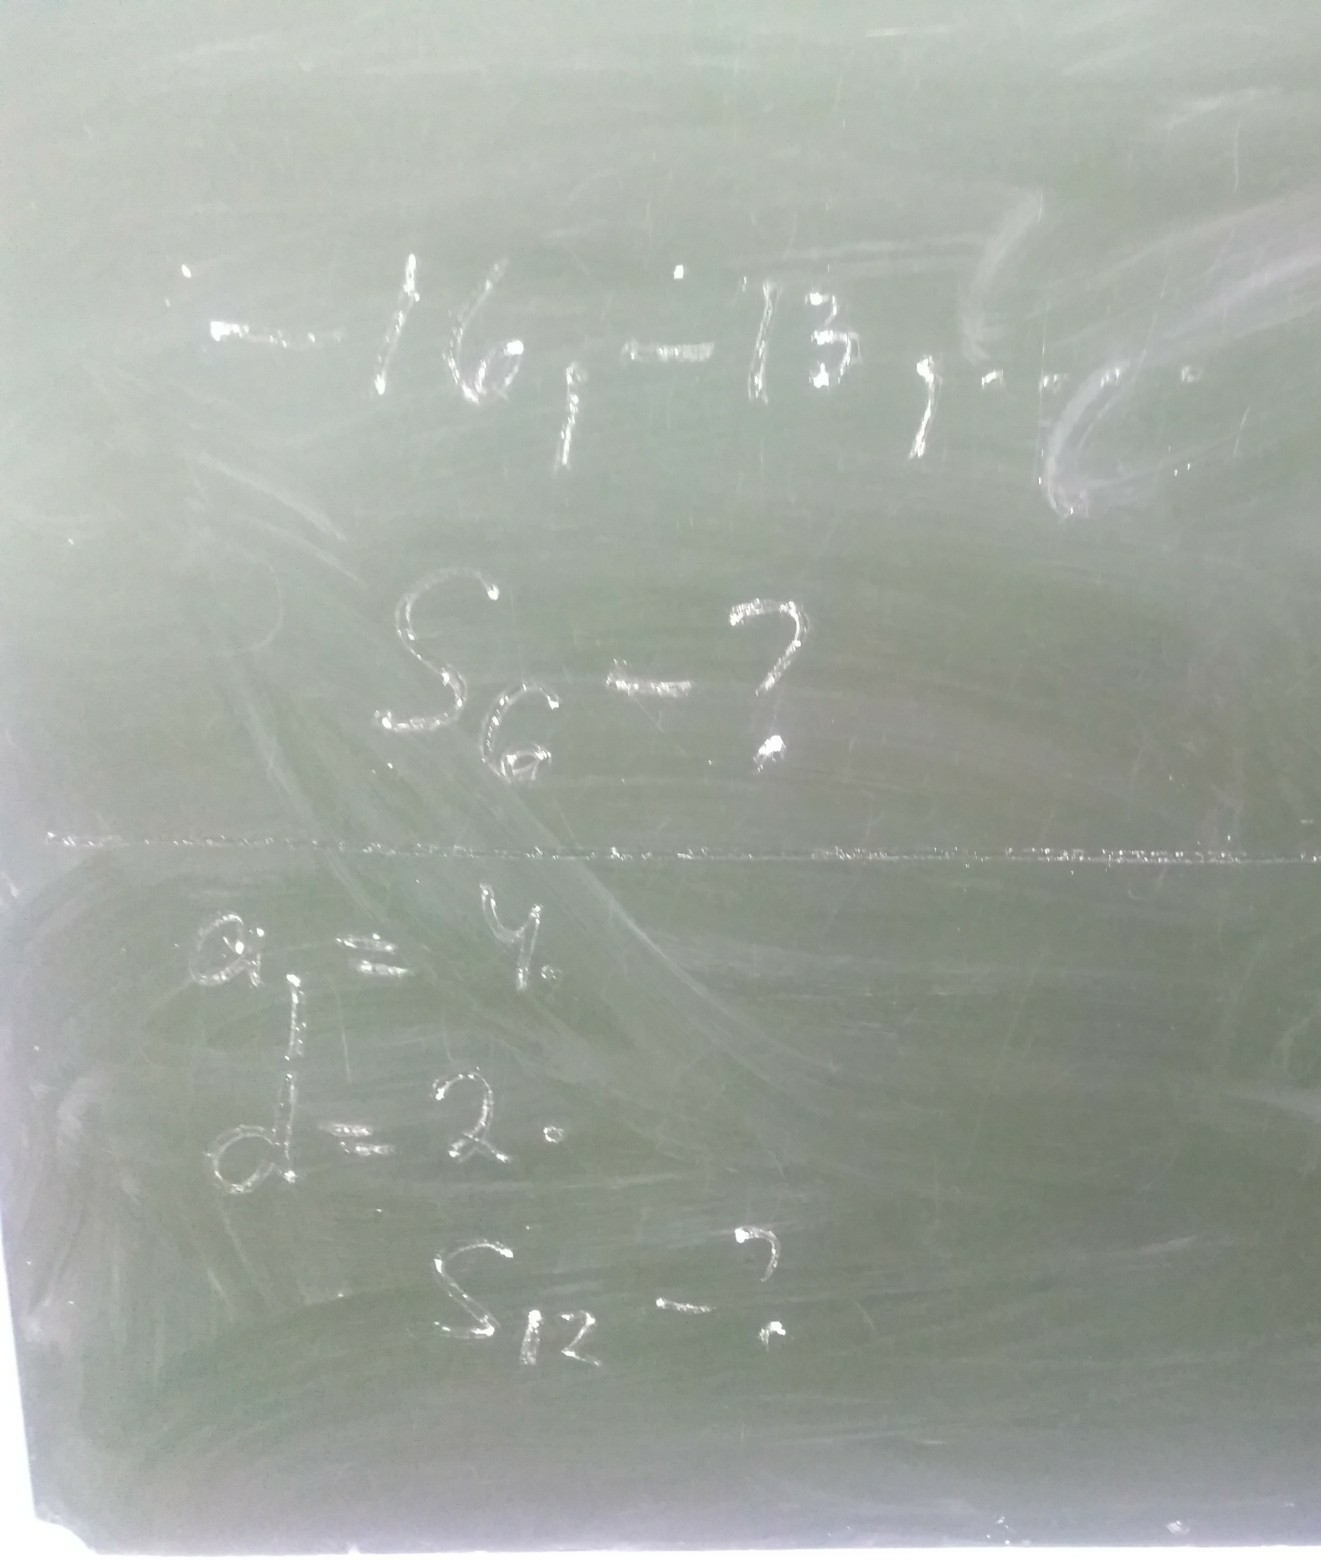 -16, -13, ....
S₆ - ?
a₁ = 4.
d = 2.
S₁₂ - ?